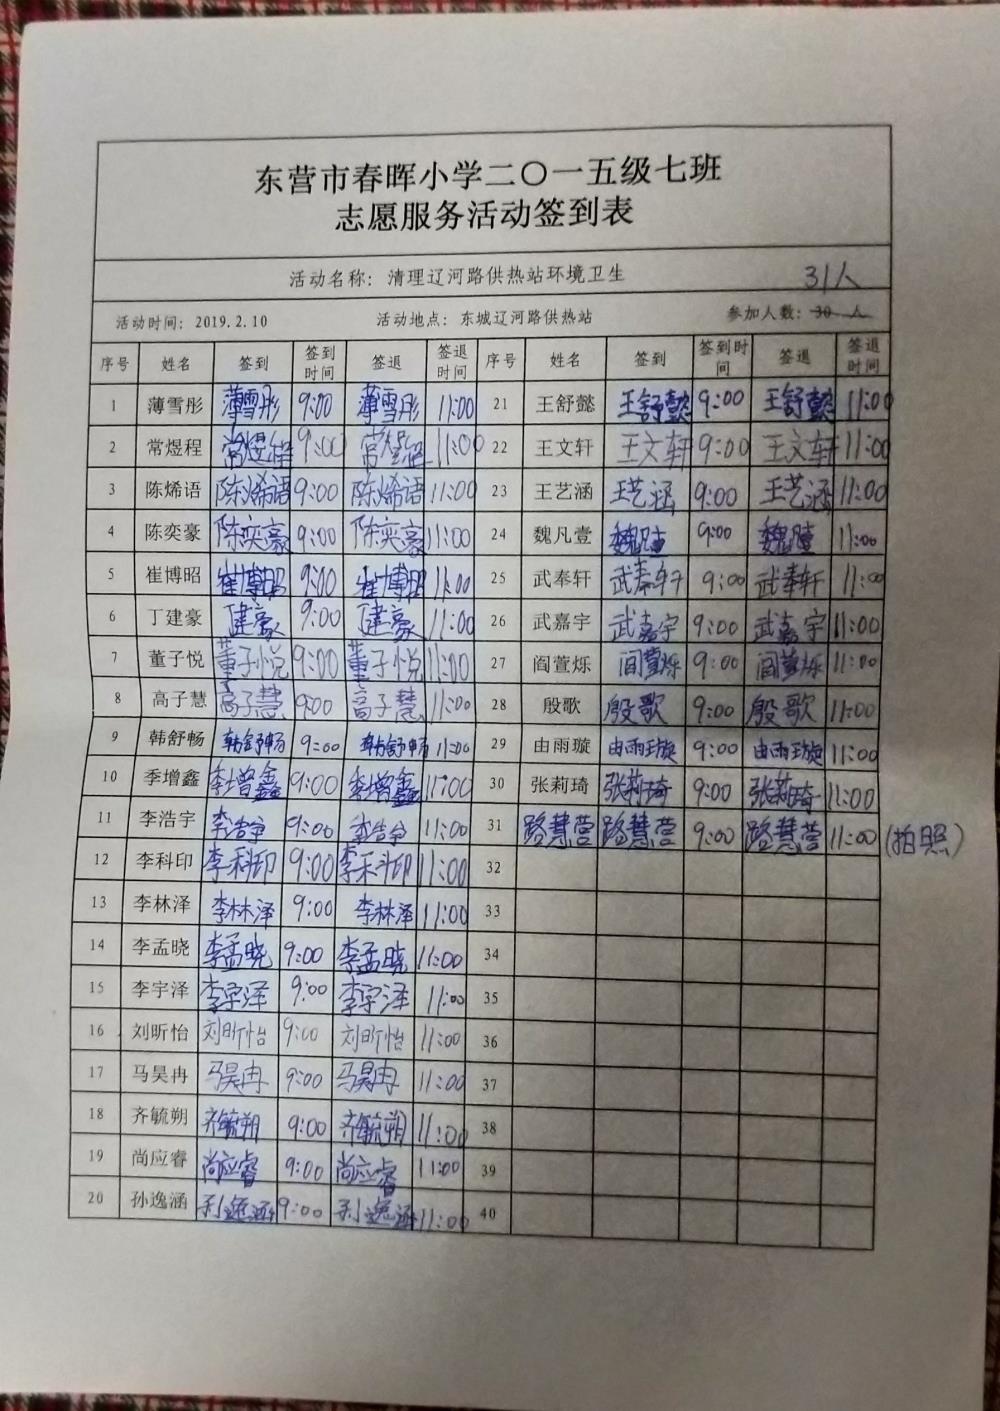 东营市春晖小学二〇一五级七班
志愿服务活动签到表
活动名称：清理辽河路供热站环境卫生 31人
活动时间：2019.2.10 活动地点：东城辽河路供热站 参加人数：30 人
序号 姓名 签到 签到时间 签退 签退时间 序号 姓名 签到 签到时间 签退 签退时间
1 薄雪彤 薄雪彤 9:00 薄雪彤 11:00 21 王舒懿 王舒懿 9:00 王舒懿 11:00
2 常煜程 常煜程 9:00 常煜程 11:00 22 王文轩 王文轩 9:00 王文轩 11:00
3 陈烯语 陈烯语 9:00 陈烯语 11:00 23 王艺涵 王艺涵 9:00 王艺涵 11:00
4 陈奕豪 陈奕豪 9:00 陈奕豪 11:00 24 魏凡壹 魏凡壹 9:00 魏凡壹 11:00
5 崔博昭 崔博昭 9:00 崔博昭 11:00 25 武奉轩 武奉轩 9:00 武奉轩 11:00
6 丁建豪 丁建豪 9:00 丁建豪 11:00 26 武嘉宇 武嘉宇 9:00 武嘉宇 11:00
7 董子悦 董子悦 9:00 董子悦 11:00 27 阎萱烁 阎萱烁 9:00 阎萱烁 11:00
8 高子慧 高子慧 9:00 高子慧 11:00 28 殷歌 殷歌 9:00 殷歌 11:00
9 韩舒畅 韩舒畅 9:00 韩舒畅 11:00 29 由雨璇 由雨璇 9:00 由雨璇 11:00
10 季增鑫 季增鑫 9:00 季增鑫 11:00 30 张莉琦 张莉琦 9:00 张莉琦 11:00
11 李浩宇 李浩宇 9:00 李浩宇 11:00 31 路慧莹 路慧莹 9:00 路慧莹 11:00 (拍照)
12 李科印 李科印 9:00 李科印 11:00 32
13 李林泽 李林泽 9:00 李林泽 11:00 33
14 李孟晓 李孟晓 9:00 李孟晓 11:00 34
15 李宇泽 李宇泽 9:00 李宇泽 11:00 35
16 刘昕怡 刘昕怡 9:00 刘昕怡 11:00 36
17 马昊冉 马昊冉 9:00 马昊冉 11:00 37
18 齐毓朔 齐毓朔 9:00 齐毓朔 11:00 38
19 尚应睿 尚应睿 9:00 尚应睿 11:00 39
20 孙逸涵 孙逸涵 9:00 孙逸涵 11:00 40